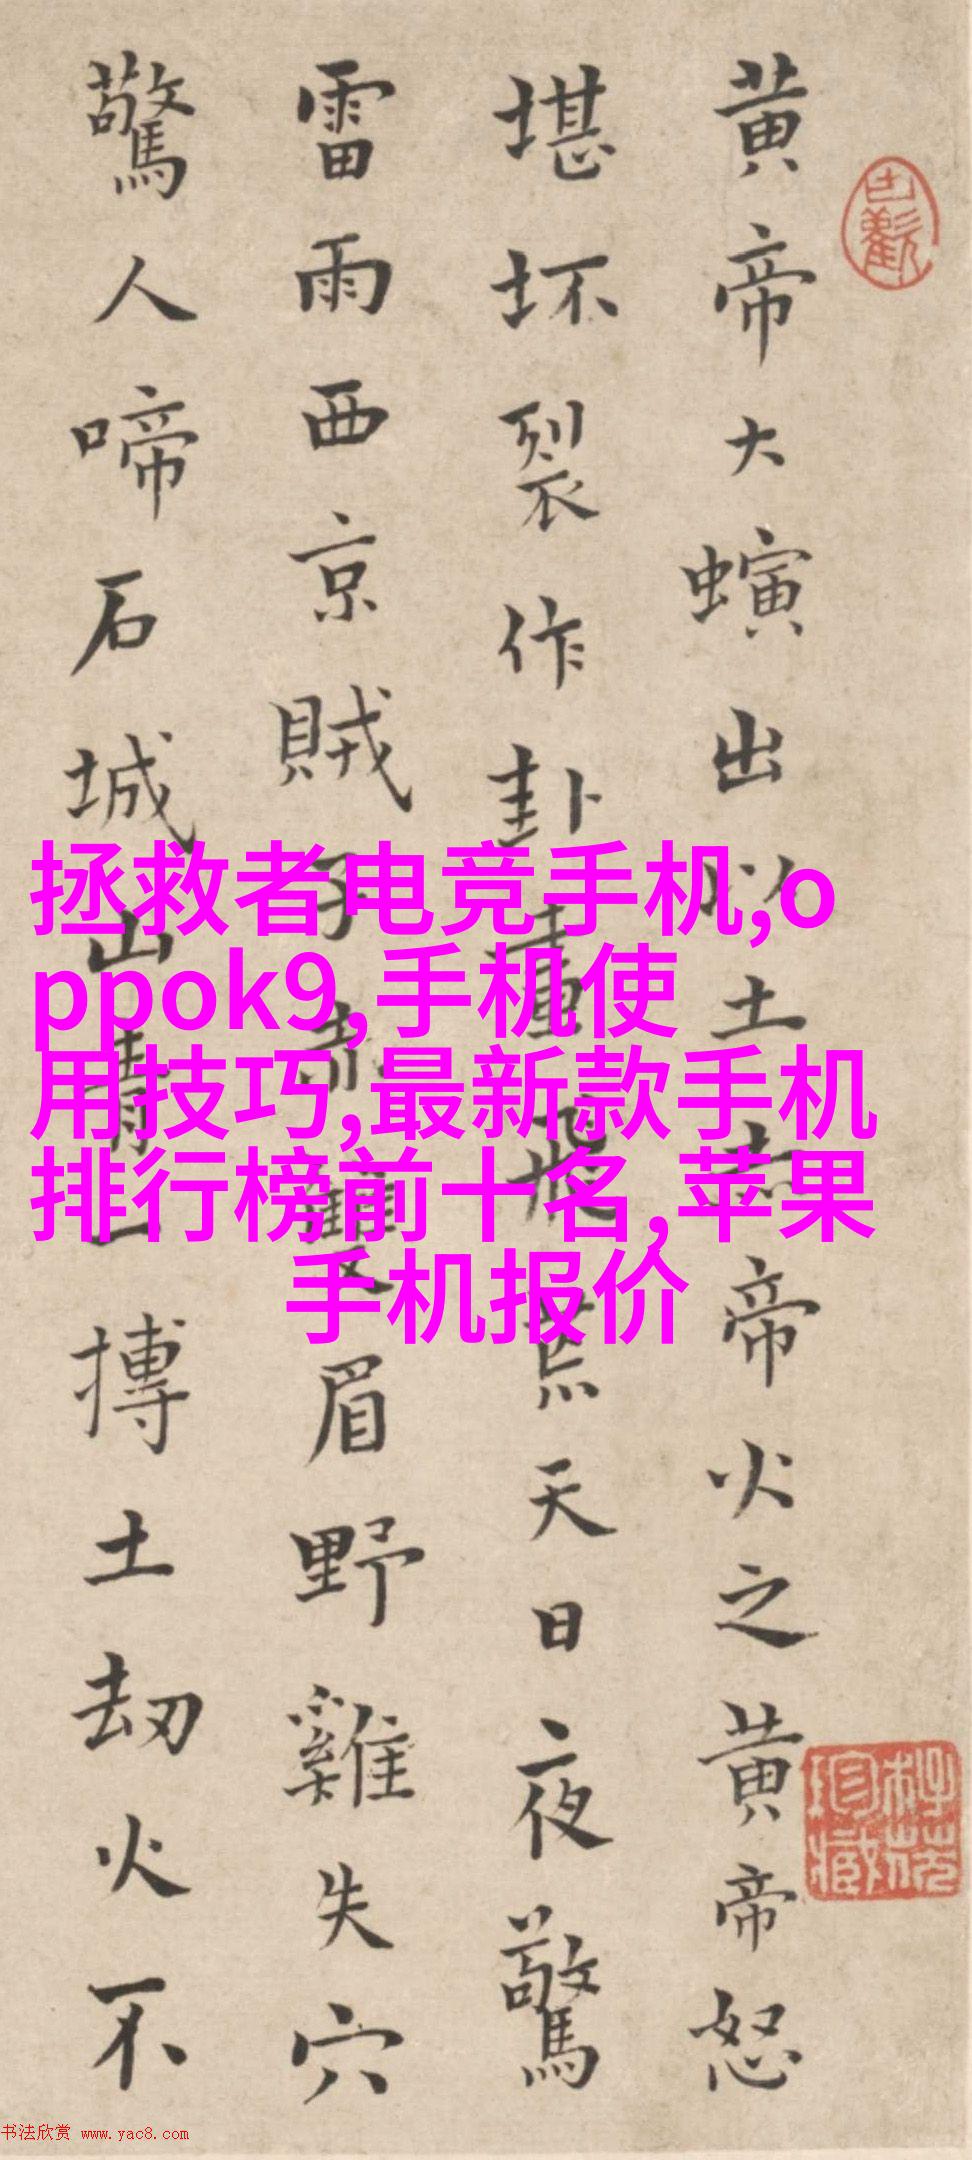 黄帝大螾出以土帝火之黄帝怒
堪坏裂作卦飛天日夜驚
雷雨西京賊子赤雙眉野雞失穴
驚人啼石城山青一搏土劫火不
拯救者电竞手机,o
ppok9,手机使
用技巧,最新款手机
排行榜前十名,苹果
手机报价
书法欣赏 www.yac8.com